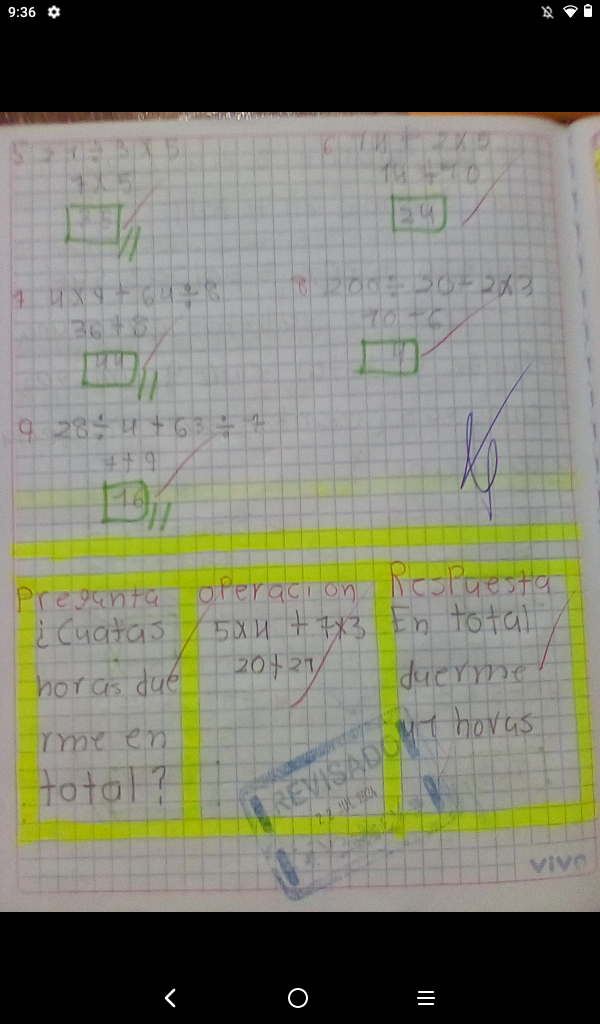 9:36
5 21 ÷ 3 x 5
7 x 5
35
6 14 + 2 x 5
14 + 10
24
7 4 x 9 + 64 ÷ 8
36 + 8
44
8 200 ÷ 20 - 2 x 3
10 - 6
4
9 28 ÷ 4 + 63 ÷ 7
7 + 9
16
Pregunta
¿Cuatas
horas due
rme en
total?
operacion
5x4 + 7x3
20+21
Respuesta
En total
duerme
41 horas
REVISADO
22 JUL 2024
vivo